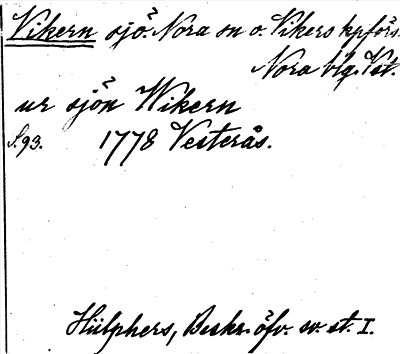 Vikern sjö. Nora sn o. Vikers kpförs.
Nora brg. Vst.
ur sjön Wikern
S. 93. 1778 Vesterås.
Hülphers, Beskr. öfv. sv. st. I.